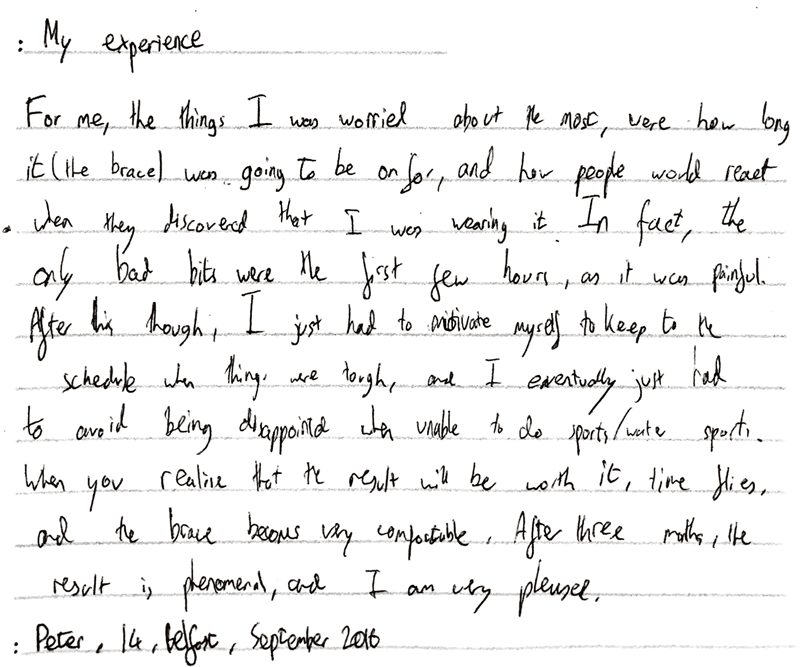 : My experience
For me, the things I was worried about the most, were how long
it (the brace) was going to be on for, and how people would react
when they discovered that I was wearing it. In fact, the
only bad bits were the first few hours, as it was painful.
After this though, I just had to motivate myself to keep to the
schedule when things were tough, and I eventually just had
to avoid being disappointed when unable to do sports/water sports.
When you realise that the result will be worth it, time flies,
and the brace becomes very comfortable. After three months, the
result is phenomenal, and I am very pleased.
: Peter, 14, Belfast, September 2016